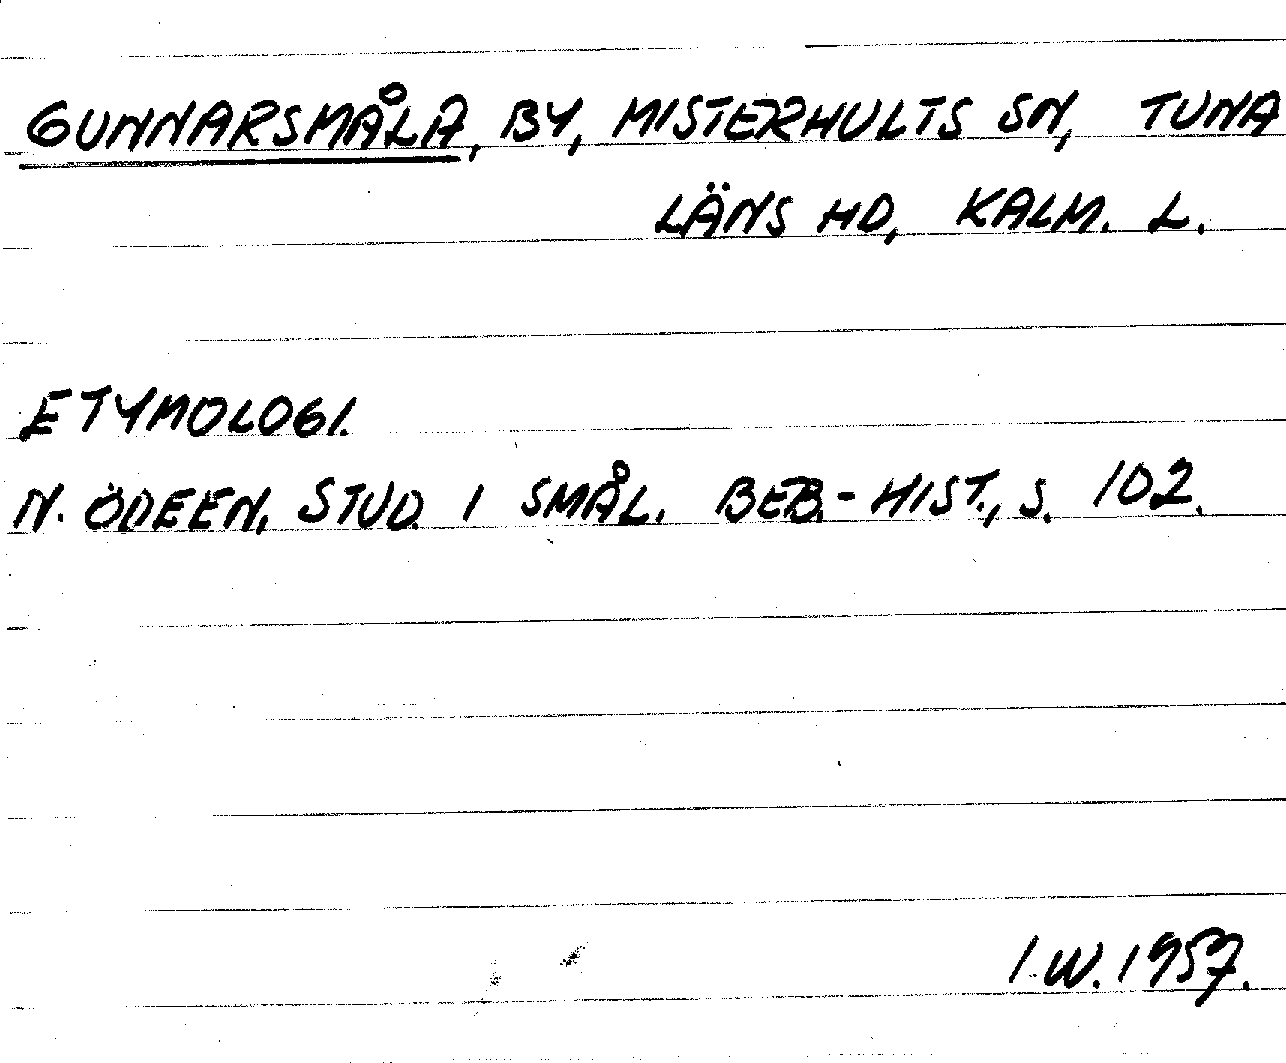 GUNNARSMÅLA, BY, MISTERHULTS SN, TUNA
LÄNS HD, KALM. L.
ETYMOLOGI.
N. ÖDEEN, STUD. I SMÅL. BEB.-HIST., S. 102.
I.W. 1957.